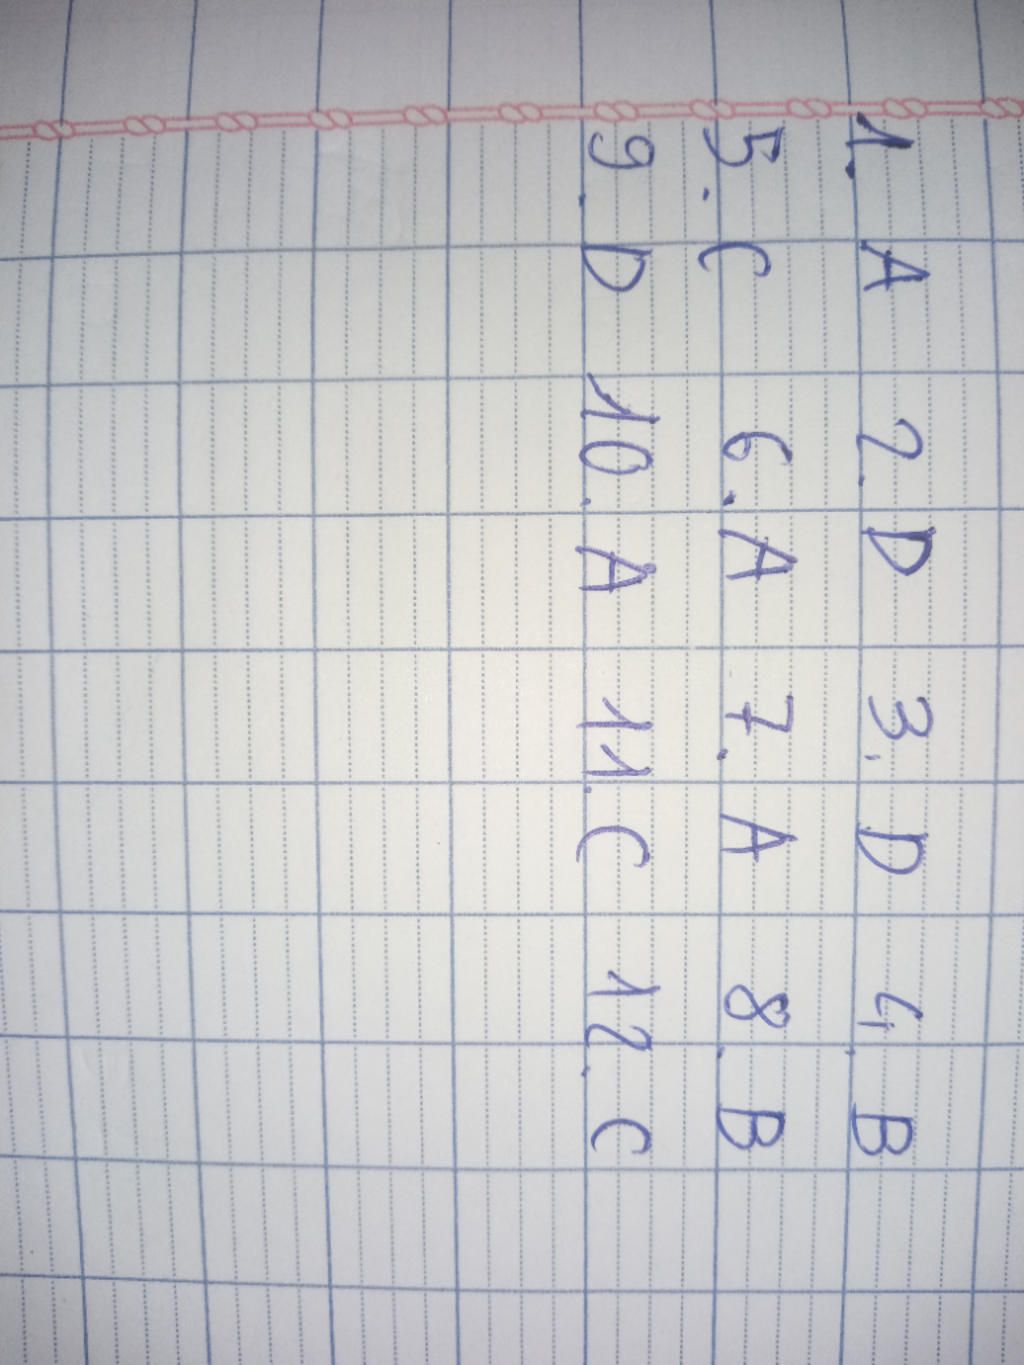 1. A 2. D 3. D 4. B
5. C 6. A 7. A 8. B
9. D 10. A 11. C 12. C